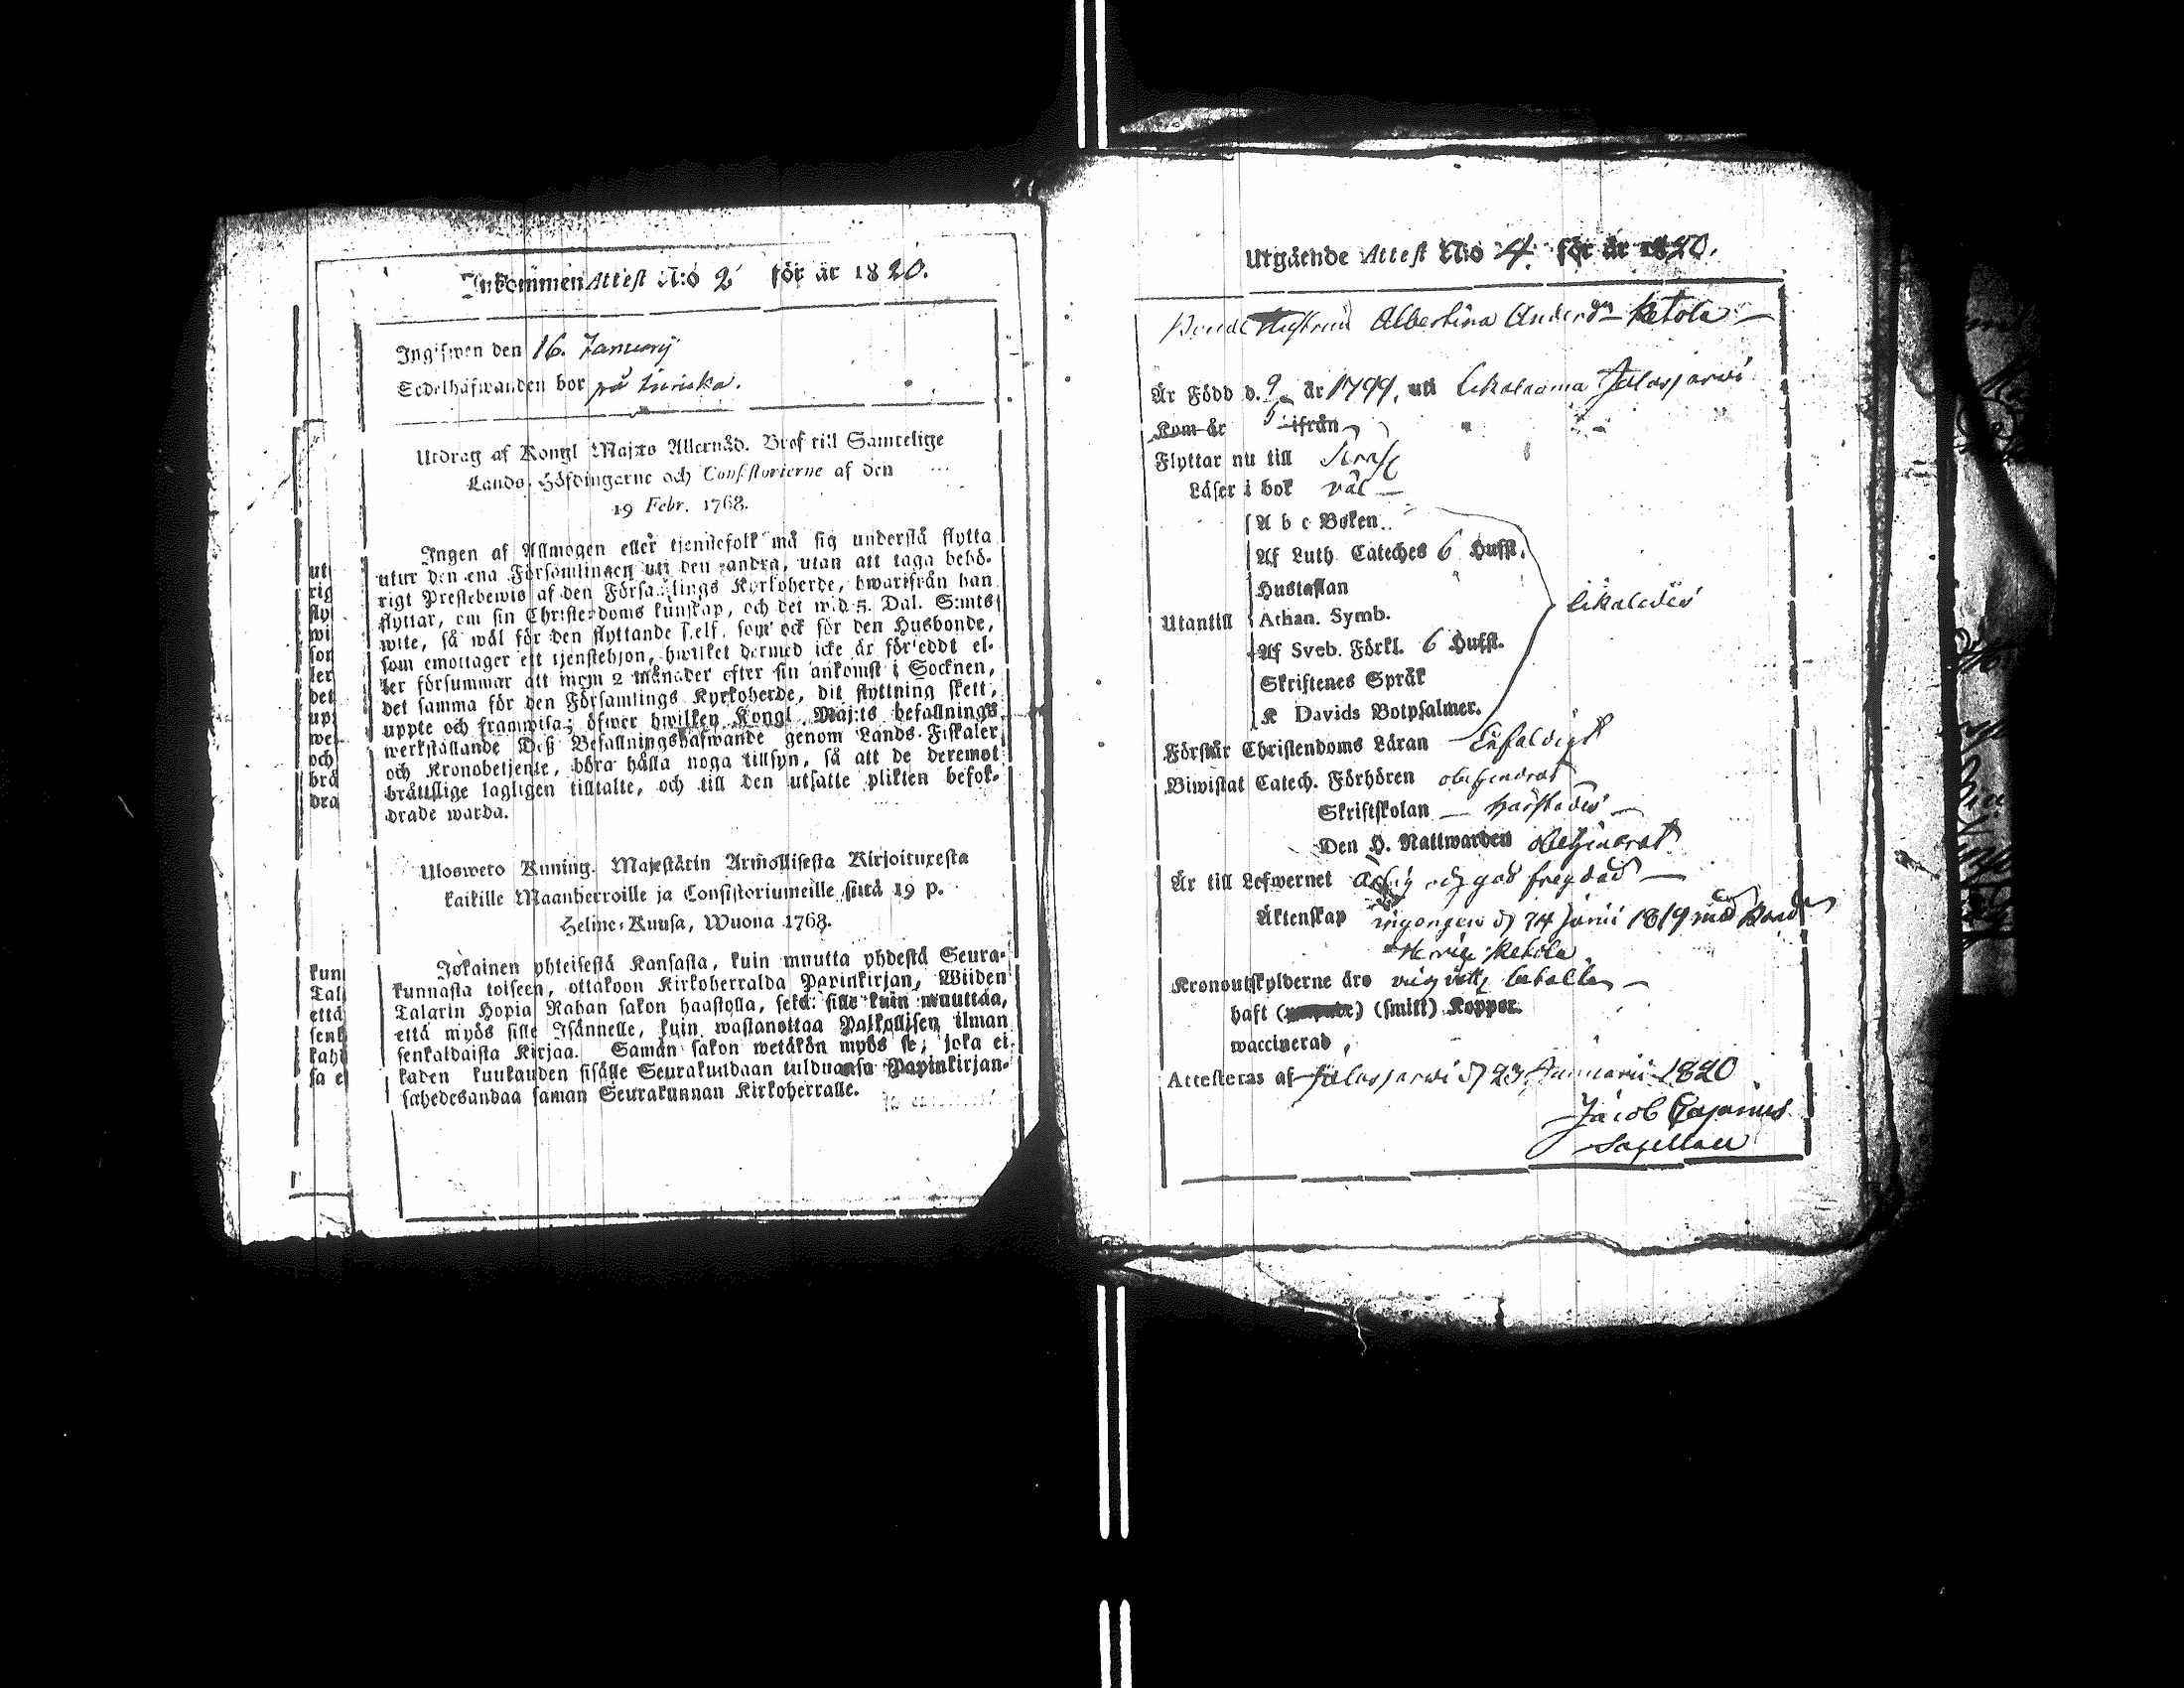 Inkommen Attest N:o 2 för år 1820.
Ingifwen den 16. January
Sedelhafwanden bor på
Utdrag af Kongl Maj:ts Allernåd. Bref till Samtelige
Lands-Höfdingarne och Consistorierne af den
19 Febr. 1768.
Ingen af Allmogen eller tjenstefolk må sig understå flytta
utur den ena Församlingen uti den andra, utan att taga behö-
rigt Prestebewis af den Församlings Kyrkoherde, hwarifrån han
flyttar, om sin Christendoms kunskap, och det wid 5. Dal. S:mts
wite, så wäl för den flyttande self, som ock för den Husbonde,
som emottager ett tjenstehjon, hwilket dermed icke är försedt el-
ler försummar att inom 2 månader efter sin ankomst i Socknen,
det samma för den Församlings Kyrkoherde, dit flyttning skett,
uppte och framwisa; öfwer hwilken Kongl. Maj:ts befallnings
werkställande Deß Befallningshafwande genom Lands-Fiskaler
och Kronobetjente, böra hålla noga tillsyn, så att de deremot
bråttslige lagligen tilltalte, och till den utsatte plikten befor-
drade warda.
Ulosweto Kuning. Majestätin Armollisesta Kirjoituxesta
kaikille Maanherroille ja Consistoriumeille siitä 19 p.
Helme-Kuusa, Wuona 1768.
Jokainen yhteisestä Kansasta, kuin muutta yhdestä Seura-
kunnasta toiseen, ottakoon Kirkoherralda Papinkirjan, Wiiden
Talarin Hopia Rahan sakon haastolla, sekä sille kuin muuttaa,
että myös sille Isännelle, kuin wastanottaa Palkollisen ilman
senkaldaista Kirjaa. Saman sakon wetäkön myös se, joka ei
kahden kuukauden sisälle Seurakundaan tulduansa Papinkirjan-
sa edesandaa saman Seurakunnan Kirkoherralle.
ut
rig
fly
wi
son
ler
det
up
we
och
brå
dra
kun
Tal
että
senk
kah
sa e
Utgående Attest N:o 4. för år 1820.
Bonde Hustrun Albertina Andersdr Ketola
Är Född d. 9 år 1799. uti Jalasjärwi
Kom år ifrån
Flyttar nu till
Läser i bok väl
A b c Boken
Af Luth. Cateches 6 Hufst.
Hustaflan
Utantill Athan. Symb. likaledes
Af Sveb. Förkl. 6 Hufst.
Skriftenes Språk
K Davids Botpsalmer.
Förstår Christendoms Läran Enfaldigt
Biwistat Catech. Förhören obehindrat
Skriftskolan
Den H. Nattwarden obehindrat
Är till Lefwernet ärlig och god frejdad
Äktenskap ingången d 24 Junii 1819 med Bonden
Henric Ketola
Kronoutskylderne äro betalte
haft (smitt) Koppor.
waccinerad
Attesteras af Jalasjarwi d 23 Januarii 1820
Jacob Cajanus
Capellan